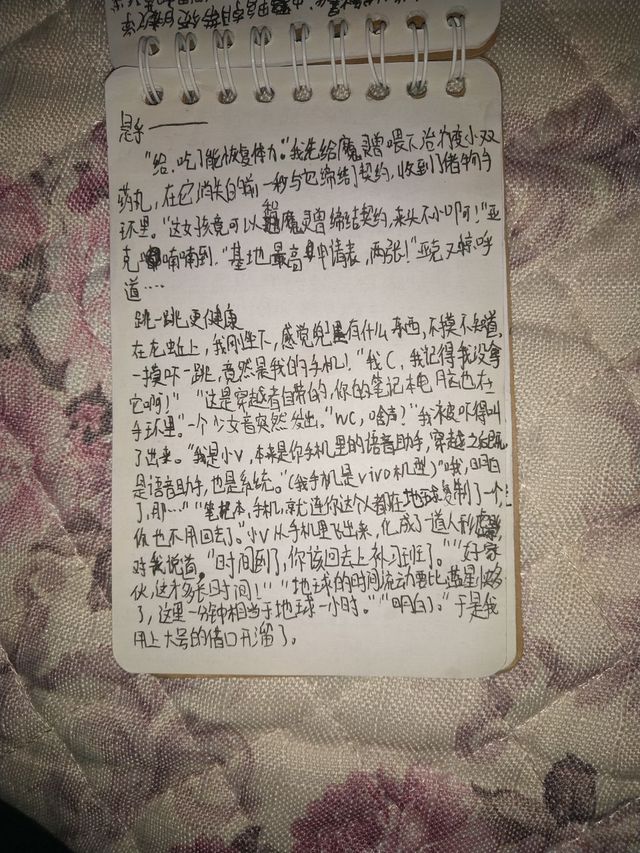 息手——
“给,吃了能恢复体力。”我先给魔灵兽喂下治疗变小双
药丸,在它消失的前一秒与它缔结了契约,收到了储物手
环里。“这女孩竟可以和魔灵兽缔结契约,来头不小啊!”亚
克喃喃到.“基地最高申请表,两张!”亚克又惊呼
道....
跳一跳更健康
在龙蚯上,我刚坐下,感觉兜里有什么东西,不摸不知道,
一摸吓一跳,竟然是我的手机!“我C,我记得我没拿
它啊!”“这是穿越者自带的,你的笔记本电脑也在
手环里。”一个少女音突然发出。“WC,啥声?”我被吓得叫
了出来。“我是小V,本来是你手机里的语音助手,穿越之后既
是语音助手,也是系统。”(我手机是vivo机型)“哦,明白
了,那...”“笔记本,手机,就连你这个人都在地球复制了一个,
你也不用回去了。”小V从手机里飞出来,化成了一道人形虚影,
对我说道。“时间到了,你该回去上补习班了。”“好家
伙,这才多长时间!”“地球的时间流动要比蓝星快多
了,这里一分钟相当于地球一小时。”“明白了。”于是我
用上大号的借口开溜了。